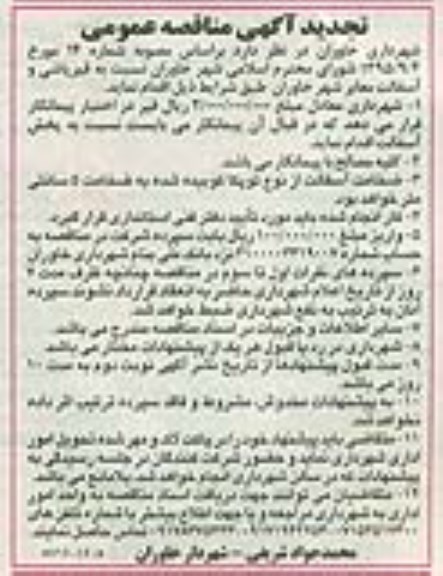 تجدید آگهی مناقصه عمومی
شهرداری خاوران در نظر دارد براساس مصوبه شماره ۱۴ مورخ
شورای محترم اسلامی شهر خاوران نسبت به قیرپاشی و
آسفالت معابر شهر خاوران طبق شرایط ذیل اقدام نماید.
۱- شهرداری معادل مبلغ ریال قیر در اختیار پیمانکار
قرار می دهد که در قبال آن پیمانکار می بایست نسبت به پخش
آسفالت اقدام نماید.
۲- کلیه مصالح با پیمانکار می باشد.
۳- ضخامت آسفالت از نوع توپکا کوبیده شده به ضخامت ۵ سانتی
متر خواهد بود.
۴- کار انجام شده باید مورد تأیید دفتر فنی استانداری قرار گیرد.
۵- واریز مبلغ ریال بابت سپرده شرکت در مناقصه به
حساب شماره نزد بانک ملی بنام شهرداری خاوران
۶- سپرده های نفرات اول تا سوم در مناقصه چنانچه ظرف مدت ۷
روز از تاریخ اعلام شهرداری حاضر به انعقاد قرارداد نشوند سپرده
آنان به ترتیب به نفع شهرداری ضبط خواهد شد.
۷- سایر اطلاعات و جزییات در اسناد مناقصه مندرج می باشد.
۸- شهرداری در رد یا قبول هر یک از پیشنهادات مختار می باشد.
۹- مدت قبول پیشنهادها از تاریخ نشر آگهی نوبت دوم به مدت ۱۰
روز می باشد.
۱۰- به پیشنهادات مخدوش، مشروط و فاقد سپرده ترتیب اثر داده
نخواهد شد.
۱۱- متقاضی باید پیشنهاد خود را در پاکت لاک و مهر شده تحویل امور
اداری شهرداری نماید و حضور شرکت کنندگان در جلسه رسیدگی به
پیشنهادات که در سالن شهرداری انجام خواهد شد، بلامانع می باشد.
۱۲- متقاضیان می توانند جهت دریافت اسناد مناقصه به واحد امور
اداری به شهرداری مراجعه و یا جهت اطلاع بیشتر با شماره تلفن های
تماس حاصل نمایند.
محمدجواد شریفی - شهردار خاوران